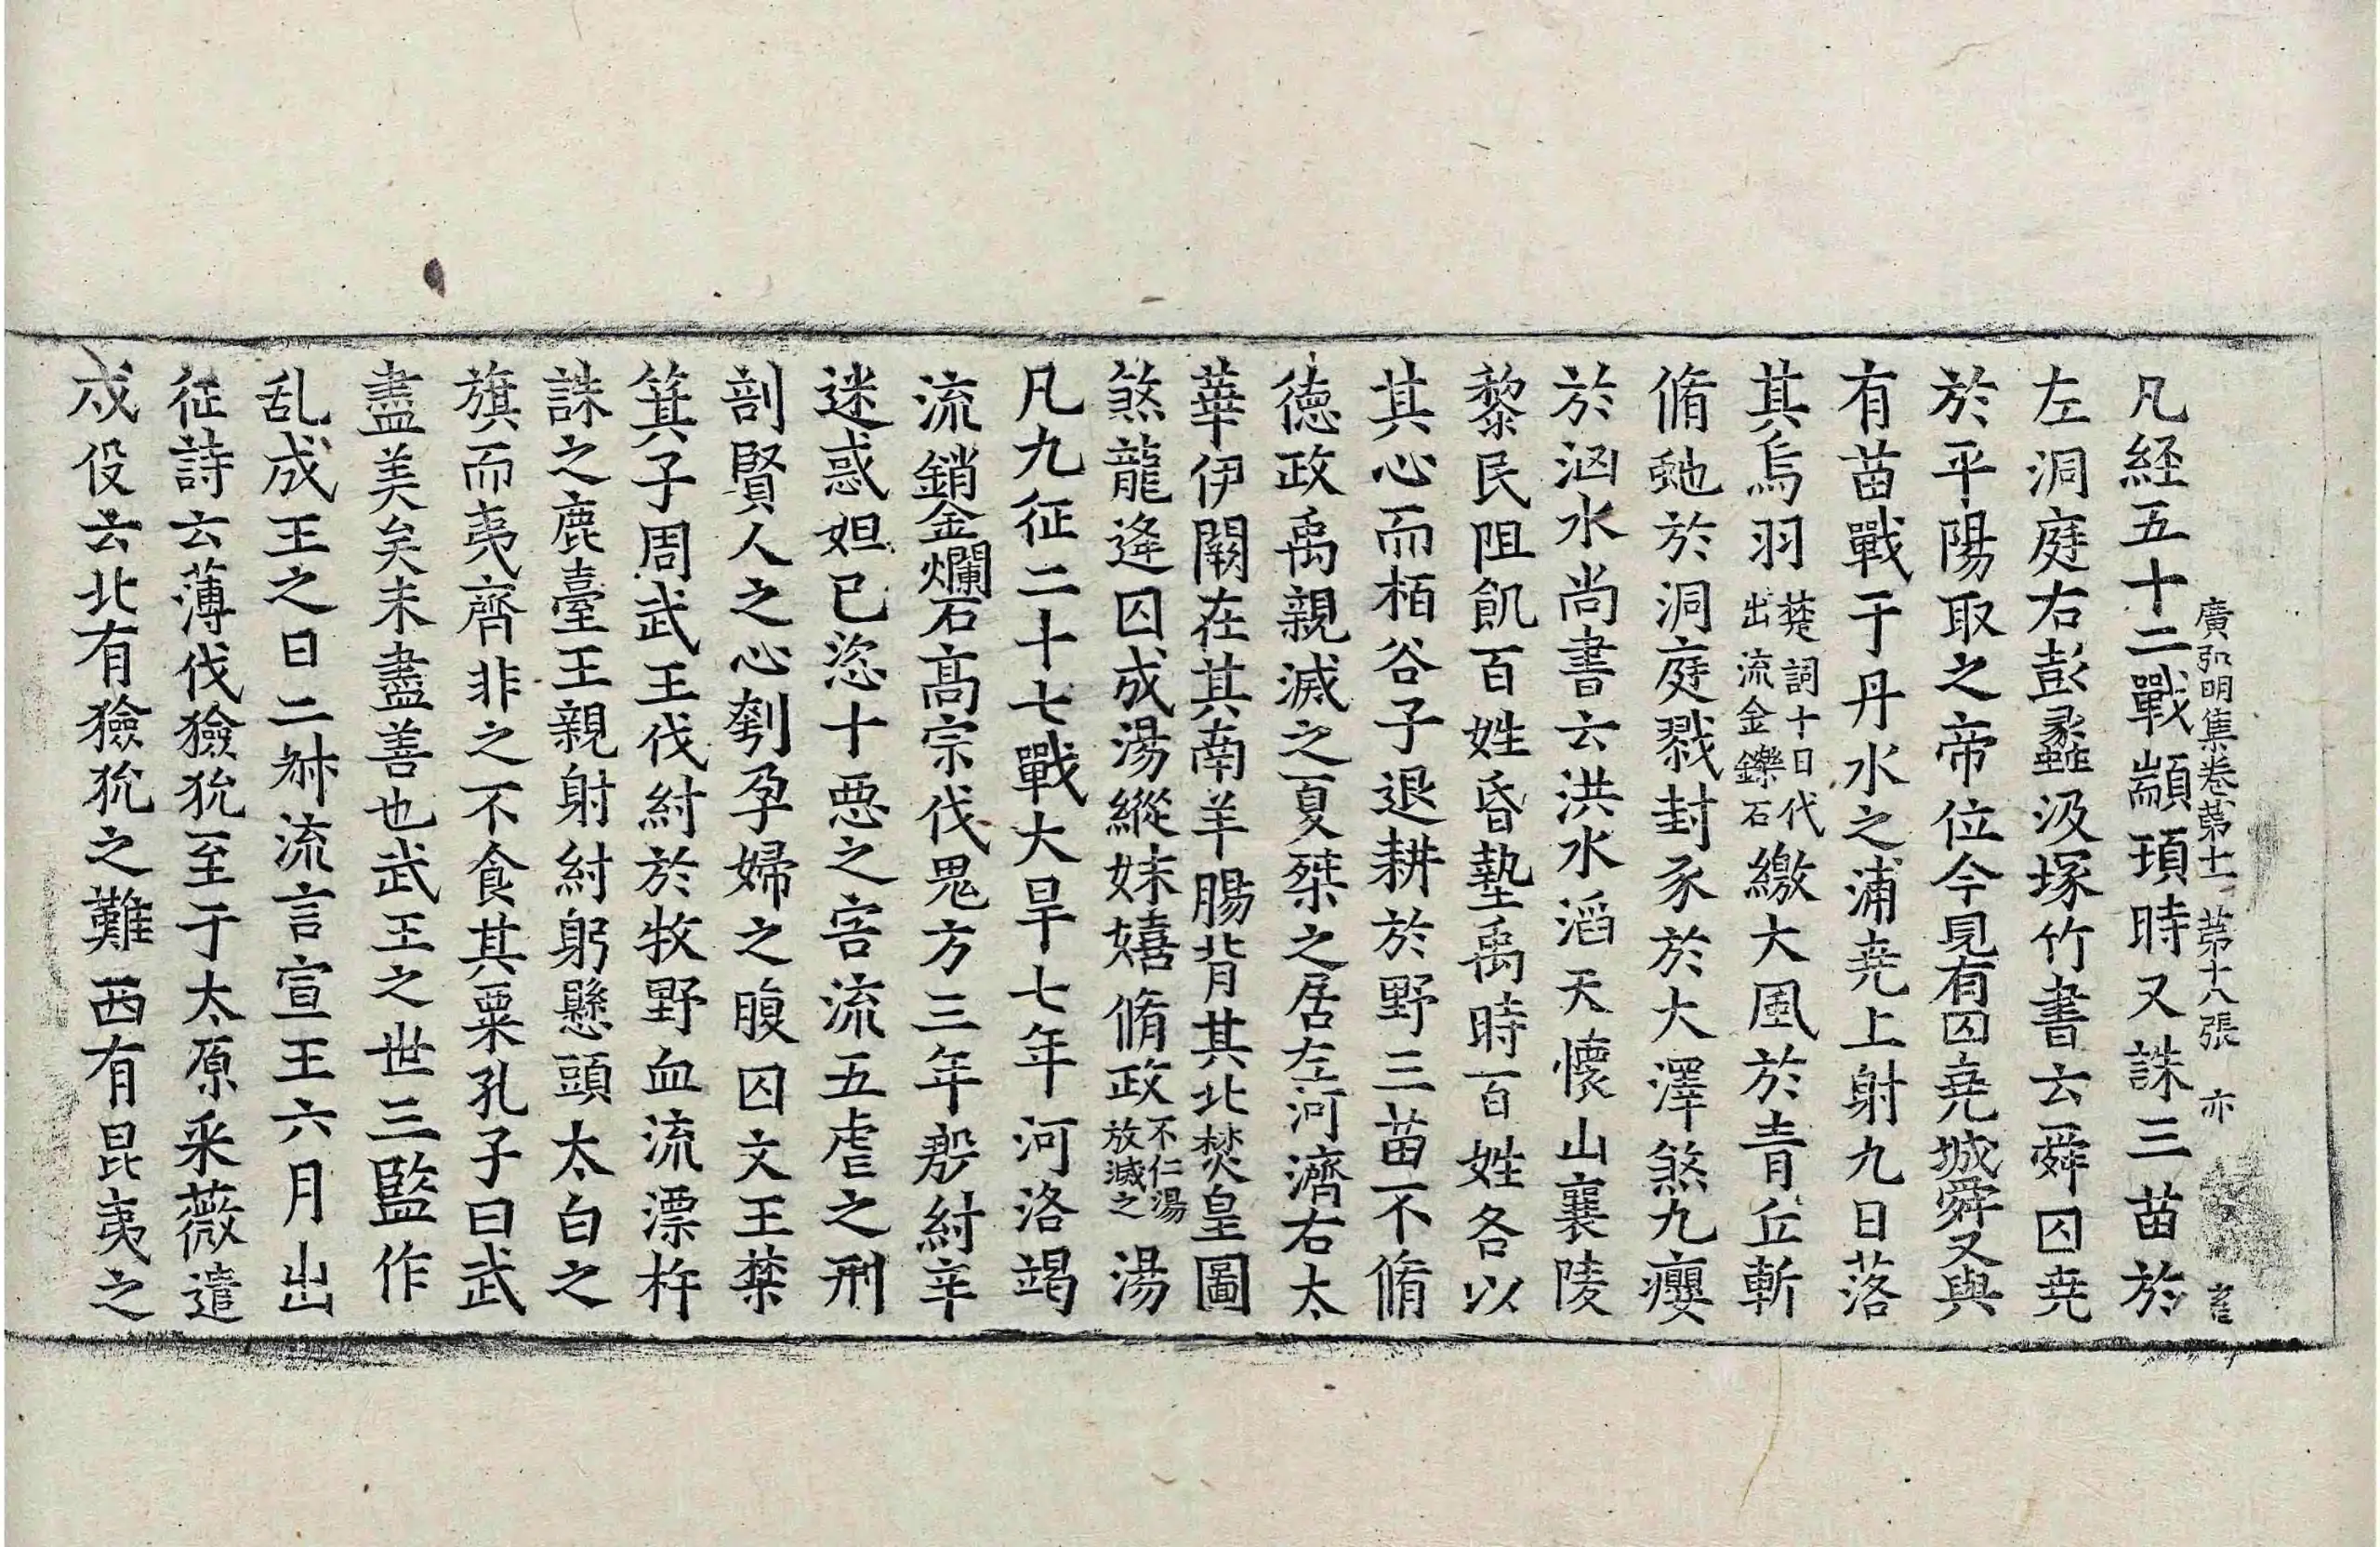 廣弘明集卷第十一 第十八張 亦
凡經五十二戰顓頊時又誅三苗於
左洞庭右彭蠡汲塚竹書云舜囚堯
於平陽取之帝位今見有囚堯城舜又與
有苗戰于丹水之浦堯上射九日落
其烏羽楚詞十日代出流金鑠石繳大風於青丘斬
脩虵於洞庭戮封豕於大澤煞九癭
於洶水尚書云洪水滔天懷山襄陵
黎民阻飢百姓昏墊禹時百姓各以
其心而栢谷子退耕於野三苗不脩
德政禹親滅之夏桀之居左河濟右太
華伊闕在其南羊腸背其北焚皇圖
煞龍逄囚成湯縱妹嬉脩政不仁湯放滅之湯
凡九征二十七戰大旱七年河洛竭
流銷金爛石髙宗伐鬼方三年殷紂辛
迷惑妲己恣十惡之害流五虐之刑
剖賢人之心刳孕婦之腹囚文王禁
箕子周武王伐紂於牧野血流漂杵
誅之鹿臺王親射紂躬懸頭太白之
旗而夷齊非之不食其粟孔子曰武
盡美矣未盡善也武王之世三監作
乱成王之日二叔流言宣王六月出
征詩云薄伐獫狁至于太原采薇遣
戍役云北有獫狁之難西有昆夷之